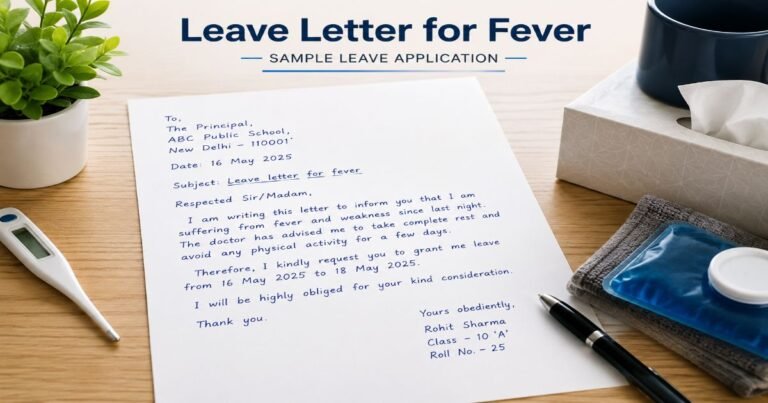 Leave Letter for Fever
SAMPLE LEAVE APPLICATION
To,
The Principal,
ABC Public School,
New Delhi - 110001'
Date: 16 May 2025
Subject: Leave letter for fever
Respected Sir/Madam,
I am writing this letter to inform you that I am
suffering from fever and weakness since last night.
The doctor has advised me to take complete rest and
avoid any physical activity for a few days.
Therefore, I kindly request you to grant me leave
from 16 May 2025 to 18 May 2025.
I will be highly obliged for your kind consideration.
Thank you.
Yours obediently,
Rohit Sharma
Class - 10 'A'
Roll No. - 25